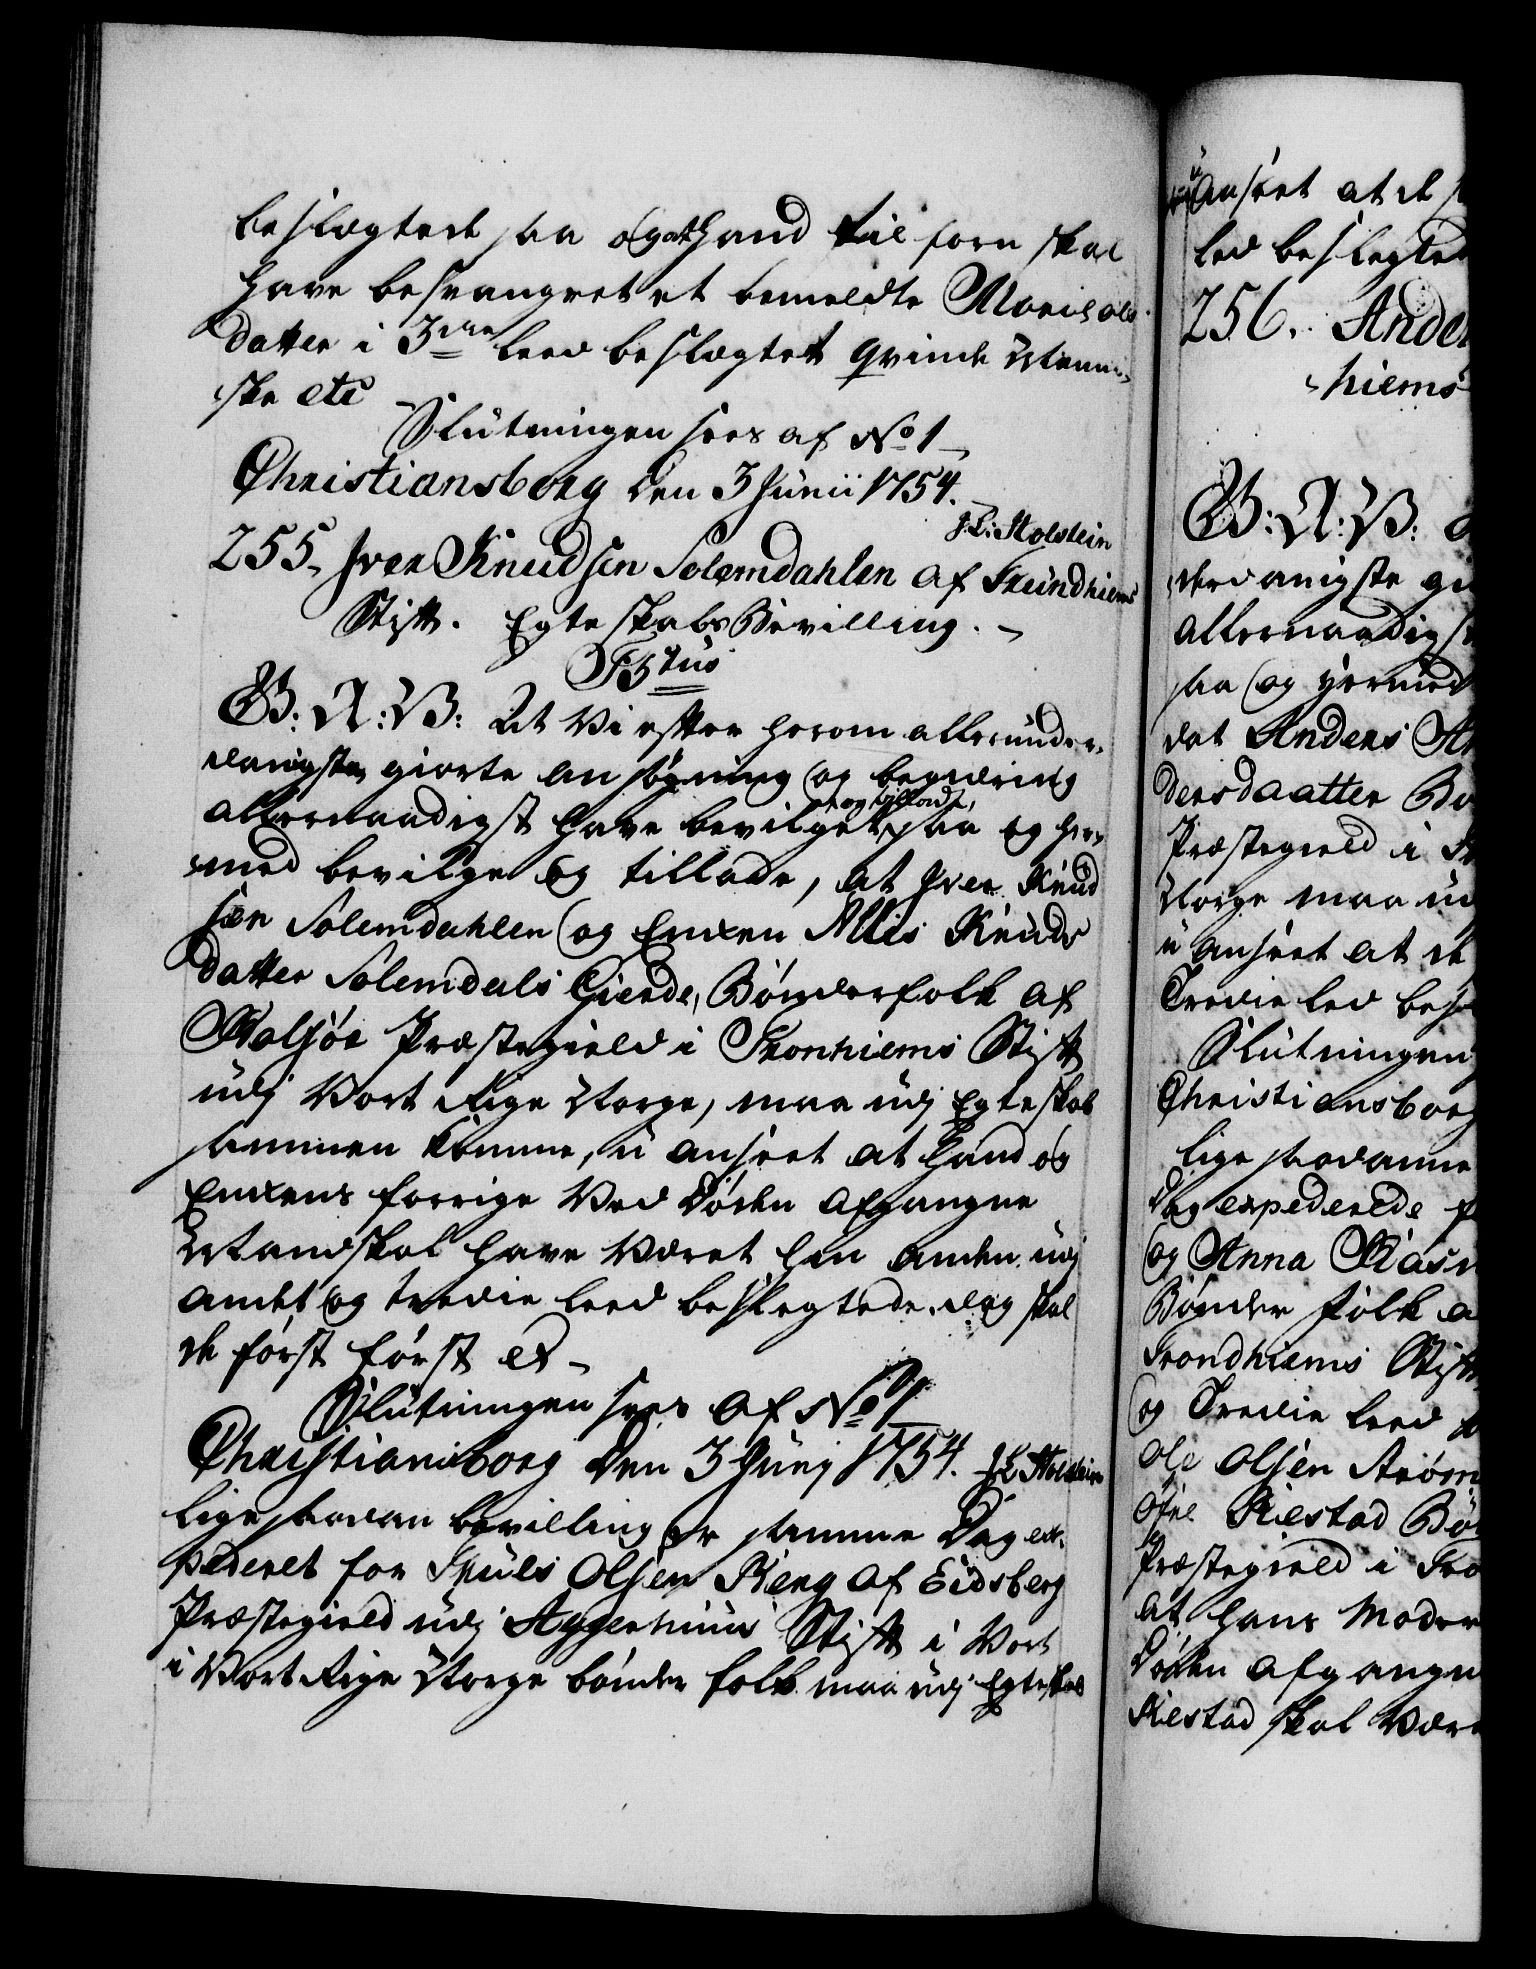 beslægtede saa og at hand til forn skal
have besvangret et bemeldte Marit Ols
datter i 3die leed beslægtet qvinde Menni
ske etc
Slutningen sees af No 1
Christiansborg den 3 Junii 1754.
J. L: Holstein
255. Iver Knudsen Solemdahlen af Trundhiems
Stift. Egteskabs Bevilling.
G: A: V: At Vi efter herom allerunder
danigste giorte ansøgning og begiering
allernaadigst have bevilget, og tilladt, saa og her
med bevilge og tillade, at Iver Knud
sen Solemdahlen og Enken Allis Knuds
datter Solemdals Gierde, Bønderfolk af
Bolsøe Præstegield i Tronhiems Stift
udj Vort Rige Norge, maa udj Egteskab
sammen komme, u anseet at hand og
Enkens forrige Ved Døden afgangne
Mand skal have Været hin anden udj
andet og tredie leed beslegtede, dog skal
de først først etc
Slutningen sees af No 1
Christiansborg den 3 Junij 1754. J L Holstein
lige saadan bevilling er samme Dag ex
pederet for Truls Olsen Berg af Eidsberg
Præstegield udj Aggerhuus Stift i Vort
i Vort Rige Norge bønder folk maa udj Egteskab
u anseet at de
led beslegted
256. Ander
hiems
G: A: V:
derdanigste gi
allernaadigst
saa og hermed
dat Anders An
dersdaatter
Præstegield i
Norge maa ud
u anseet at de
Tredie led bes
Slutningen
Christiansborg
lige saadanne
Dag expederede
og Anna
Bønder folk a
Trondhiems Stift
og Tredie leed
Ole Olsen
Kiestad Bø
Præstegield i Tro
at hans Moder
Døden afgangn
Kiestad skal Være